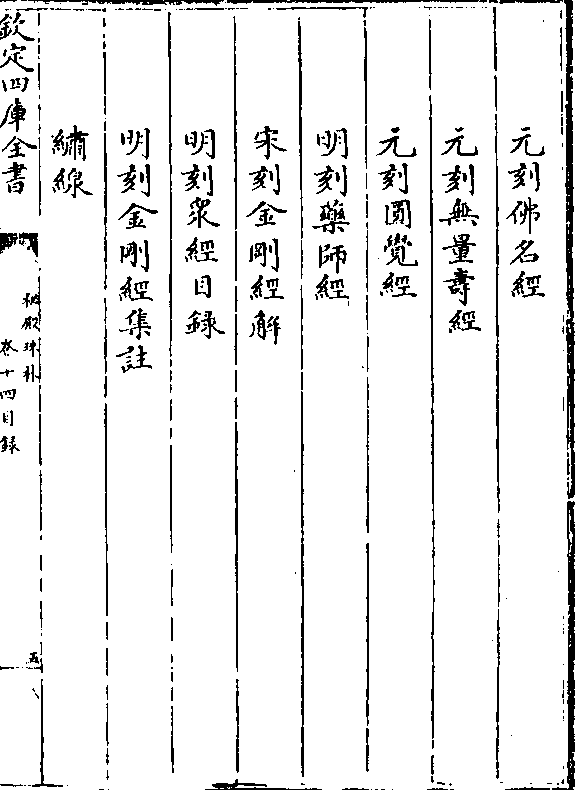 元刻佛名經
元刻無量壽經
元刻圓覺經
明刻藥師經
宋刻金剛經解
明刻眾經目録
明刻金剛經集註
繡線
欽定四庫全書
秘殿珠林
卷十四目録
五